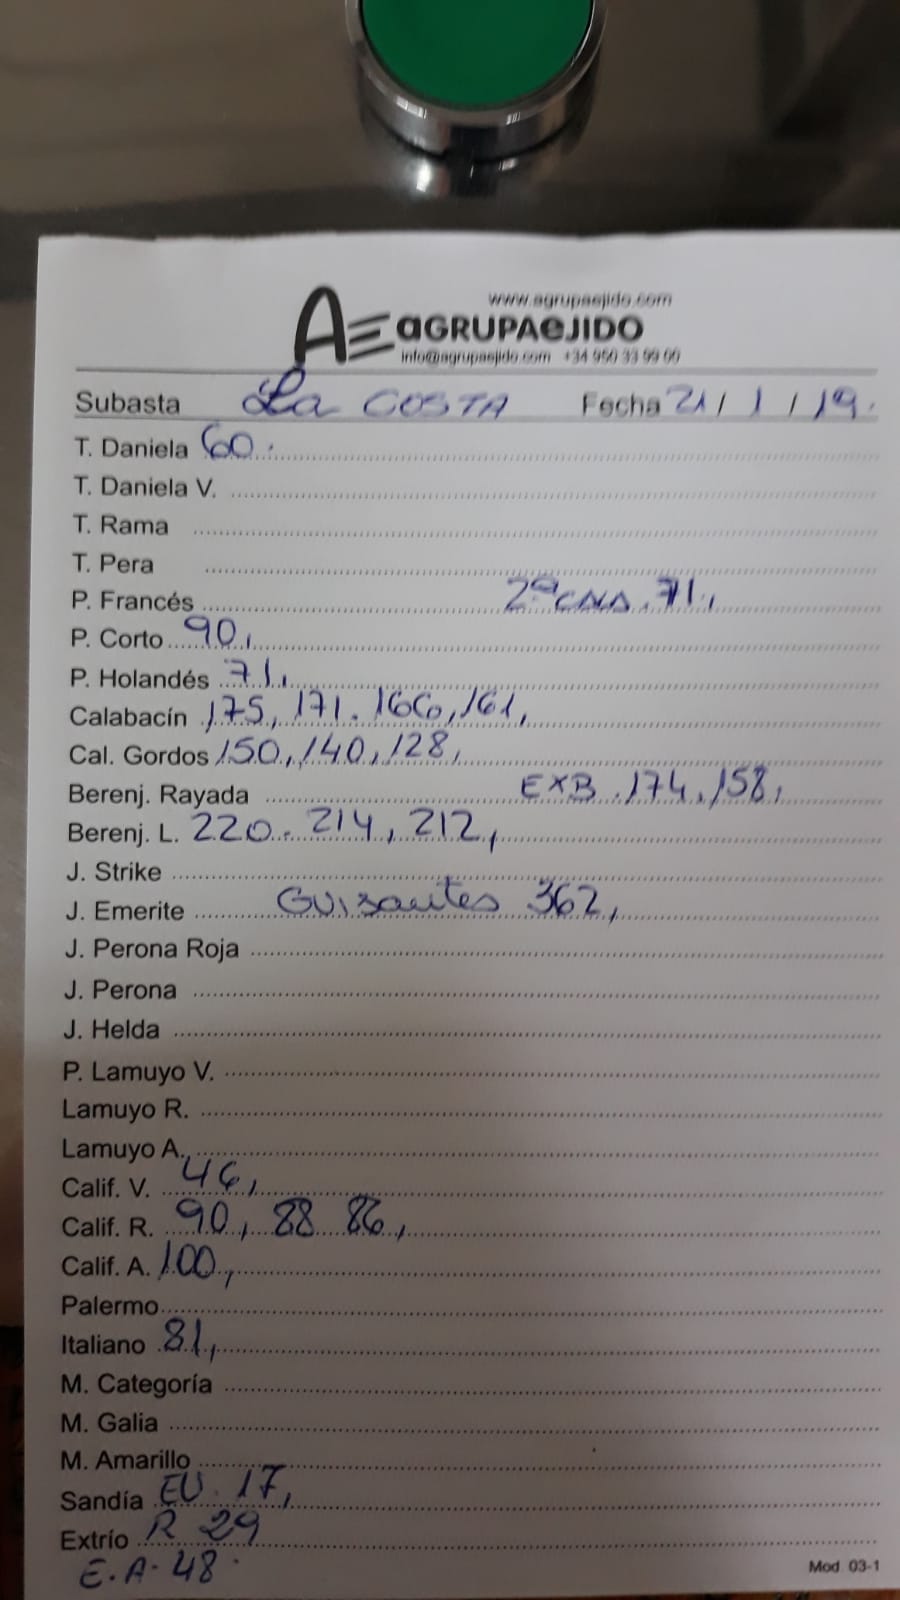 www.agrupaejido.com
AE aGRUPAeJIDO
info@agrupaejido.com +34 950 33 99 00
Subasta La COSTA Fecha 21/1/19.
T. Daniela 60.
T. Daniela V.
T. Rama
T. Pera
P. Francés 2ª CNA. 71,
P. Corto 90,
P. Holandés 71,
Calabacín 175, 171. 166, 161,
Cal. Gordos 150, 140, 128,
Berenj. Rayada EXB. 174, 158,
Berenj. L. 220. 214, 212,
J. Strike
J. Emerite Guisantes 362,
J. Perona Roja
J. Perona
J. Helda
P. Lamuyo V.
Lamuyo R.
Lamuyo A.
Calif. V. 46,
Calif. R. 90, 88 86,
Calif. A. 100,
Palermo
Italiano 81,
M. Categoría
M. Galia
M. Amarillo
Sandía EV. 17,
Extrío R 29
E.A. 48.
Mod. 03-1